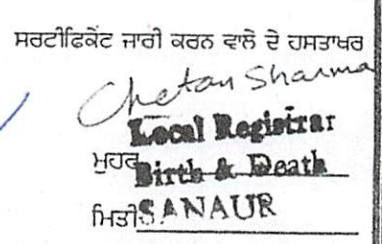 ਸਰਟੀਫਿਕੇਟ ਜਾਰੀ ਕਰਨ ਵਾਲੇ ਦੇ ਹਸਤਾਖਰ
Chetan Sharma
Local Registrar
ਮੁਹਰ Birth & Death
ਮਿਤੀ SANAUR